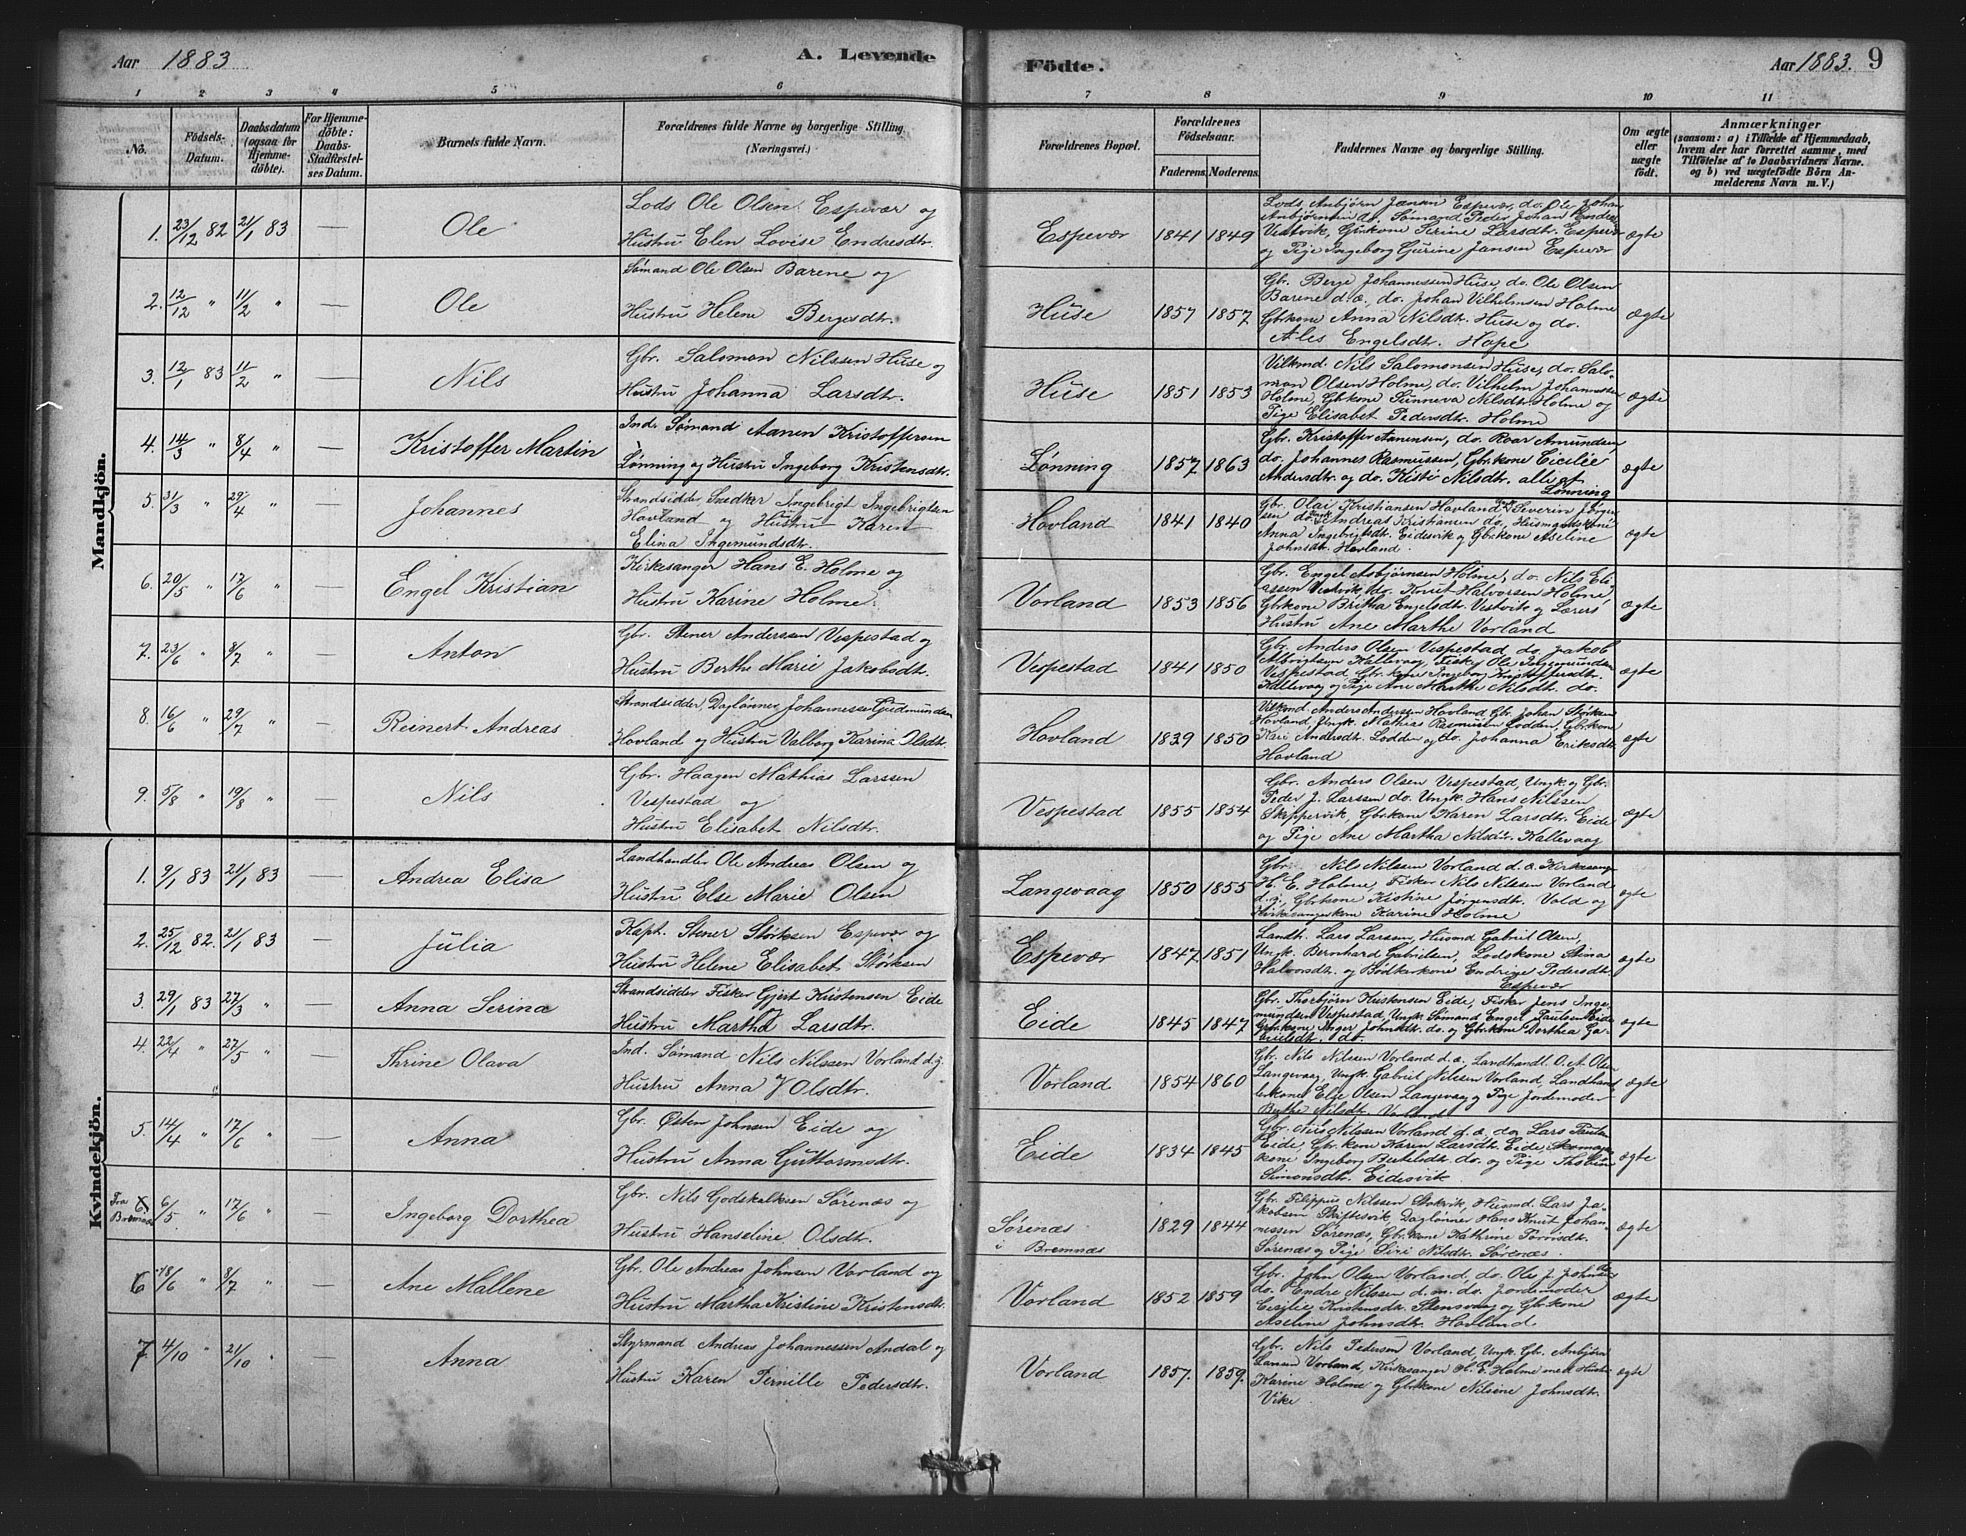 Aar 1883
A. Levende
Födte.
Aar 1883.
9
1 2 3 4 5 6 7 8 9 10 11
No.
Födsels-Datum.
Daabsdatum (ogsaa for Hjemmedöbte).
For Hjemmedöbte: Daabs-Stadfæstelses Datum.
Barnets fulde Navn.
Forældrenes fulde Navne og borgerlige Stilling. (Næringsvei.)
Forældrenes Bopæl.
Forældrenes Födselsaar.
Faderens. Moderens.
Faddernes Navne og borgerlige Stilling.
Om ægte eller uægte födt.
Anmærkninger
(saasom: a) i Tilfælde af Hjemmedaab, hvem der har forrettet samme, med Tilföielse af to Daabsvidners Navne. og b) ved uægtefödte Börn Anmelderens Navn m. V.)
Mandkjön.
1. 23/12 82 21/1 83 — Ole
Lods Ole Olsen Espevær og
Hustru Elen Lovise Endresdtr.
Espevær 1841 1849
Lods Asbjörn Jansen Espevær, do. Ole Johan
Asbjörnsen do. Sømand Peder Johan Endres
Vestvik, Gbrkone Serine Larsdtr. Espevær
og Pige Ingeborg Gurine Jansen Espevær
ægte
2. 12/12 " 11/2 " — Ole
Sømand Ole Olsen Barene og
Hustru Helene Bergesdtr.
Huse 1857 1857
Gbr. Berge Johannessen Huse, do. Ole Olsen
Barene d.æ., do. Johan Vilhelmsen Holme
Gbrkone Anna Nilsdtr. Huse og do.
Ales Engelsdtr. Hope
ægte
3. 12/1 83 11/2 " — Nils
Gbr. Salomon Nilssen Huse og
Hustru Johanna Larsdtr.
Huse 1851 1853
Vilkmd. Nils Salomonsen Huse, do. Salo-
mon Olsen Holme, do. Vilhelm Johannessen
Holme, Gbrkone Sunneva Nilsdtr. Holme og
Pige Elisabet Pedersdtr. Holme
ægte
4. 14/3 " 8/4 " — Kristoffer Martin
Inds. Sømand Aanen Kristoffersen
Lønning og Hustru Ingeborg Kristensdtr.
Lønning 1857 1863
Gbr. Kristoffer Aanensen, do. Roar Amundsen,
do. Johannes Rasmussen, Gbrkone Cicilie
Andersdtr. og do. Kisti Nilsdtr. alle af
Lønning
ægte
5. 31/3 " 29/4 " — Johannes
Strandsidder Snedker Ingebrigt Ingebrigtsen
Hovland og Hustru Karen
Elina Ingemundsdtr.
Hovland 1841 1840
Gbr. Olai Kristiansen Hovland Severin Jørgen-
sen do. Andreas Kristiansen do,
Anna Ingebrigtsdtr. Eidesvik og Gbrkone Aseline
Johnsdtr. Hovland.
ægte
6. 20/5 " 17/6 " — Engel Kristian
Kirkesanger Hans E. Holme og
Hustru Karine Holme.
Vorland 1853 1856
Gbr. Engel Asbjørnsen Holme, do. Nils Eli-
assen Vestvik, do. Knut Halvorsen Holme,
Gbrkone Britha Engelsdtr. Vestvik og Lærers
Hustru Ane Marthe Vorland
ægte
7. 23/6 " 8/7 " — Anton
Gbr. Stener Anderssen Vespestad og
Hustru Berthe Marie Jakobsdtr.
Vespestad 1841 1850
Gbr. Anders Olsen Vespestad do. Jakob
Albrigtsen Kallevaag, Fisker Ole Ingemundsen
Vespestad, Gbr.kone Ingeborg Kristoffersdtr.
Kallevaag og Pige Ane Marthe Nilsdtr. do.
ægte
8. 16/6 " 29/7 " — Reinert Andreas
Strandsidder, Daglønner Johannes Gudmundsen
Hovland og Hustru Valborg Karina Olsdtr.
Hovland 1839 1850
Vilkmd. Anders Andersen Hovland Gbr. Johan Størksen
Hovland, Ungk. Mathias Rasmussen Lodden, Gbrkone
Kari Andersdtr. Lodden og do. Johanna Eriksdtr.
Hovland
ægte
9. 5/8 " 19/8 " — Nils
Gbr. Haagen Mathias Larssen
Vespestad og
Hustru Elisabet Nilsdtr.
Vespestad 1855 1854
Gbr. Anders Olsen Vespestad, Ungk. og Gbr.
Peder J. Larssen do. Ungk. Hans Nilssen
Skippervik, Gbrkone Karen Larsdtr. Eide
og Pige Ane Martha Nilsdtr. Kallevaag
ægte
Kvindekjön.
1. 9/1 83 21/1 83 — Andrea Elisa
Landhandler Ole Andreas Olsen og
Hustru Else Marie Olsen
Langevaag 1850 1855
Gbr. Nils Nilssen Vorland d.æ. Kirkesang.
H. E. Holme, Fisker Nils Nilssen Vorland
d.y., Gbrkone Kistine Jørgensdtr. Vold og
Kirkesangerkone Karine Holme
ægte
2. 25/12 82. 21/1 83 — Julia
Kapt. Stener Størksen Espevær og
Hustru Helene Elisabet Størksen
Espevær 1847 1851
Landh. Lars Larsen, Husmd Gabriel Olsen,
Ungk. Bernhard Gabrielsen, Lodskone Stina
Halvorsdtr. og Bødkerkone Endrige Pedersdtr.
Espevær
ægte
3. 29/1 83 27/3 " — Anna Serina
Strandsidder Fisker Gjert Kristensen Eide
og
Hustru Martha Larsdtr.
Eide 1845 1847
Gbr. Thorbjørn Kristensen Eide, Fisker Jens Inge-
mundsen Vespestad, Ungk. Sømand Engel Paulsen Eide
Gbrkone Inger Johnsdtr. do. og Gbrkone Dorthea Ga-
brielsdtr. do.
ægte
4. 22/4 " 27/5 " — Thrine Olava
Ind. Sømand Nils Nilssen Vorland d.y.
Hustru Anna Olsdtr.
Vorland 1854 1860
Gbr. Nils Nilssen Vorland d.æ. Landhandl. O. A. Olsen
Langevaag, Ungk. Gabriel Nilssen Vorland, Landhand-
lerkone Else Olsen Langevaag og Pige Jordemoder
Berthe Nilsdtr. Vorland
ægte
5. 14/4 " 17/6 " — Anna
Gbr. Østen Johnsen Eide og
Hustru Anna Guttormsdtr.
Eide 1834 1845
Gbr. Nils Nilssen Vorland d.æ. do. Lars Paulsen
Eide, Gbr.kone Karen Larsdtr. Eide,
kone Ingeborg Bertelsdtr. do. og Pige
Simonsdtr. Eidesvik
ægte
Fra Bremnæs 6. 6/5 " 17/6 " — Ingeborg Dorthea
Gbr. Nils Godskalksen Sørenæs og
Hustru Hanseline Olsdtr.
Sørenæs
i Bremnæs
1829 1844
Gbr. Filippus Nilssen Stokvik, Husmd. Lars Ja-
kobsen Skiftesvik, Daglønner Hans Knut Johan-
nessen Sørenæs, Gbr.kone Kathrine
Sørenæs og Pige Siri Nilsdtr. Sørenæs.
ægte
6 18/6 " 8/7 " — Ane Mallene
Gbr. Ole Andreas Johnsen Vorland og
Hustru Martha Kristine Kristensdtr.
Vorland 1852 1859
Gbr. John Olsen Vorland, do. Ole J. Johnsen
do. Endre Nilssen d.m. do. Jordemoder
Cecilie Kristensdtr. Stensvaag og Gbrkone
Aseline Johnsdtr. Hovland
ægte
7. 4/10 " 21/10 " — Anna
Styrmand Andreas Johannessen Andal og
Hustru Karen Pernille Pedersdtr.
Vorland 1857. 1859.
Gbr. Nils Pedersen Vorland, Ungk. Gbr. Asbjørn
Larsen Vorland, Kirkesanger H. E. Holme med Hustru
Karine Holme og Gbrkone Nilsine Johnsdtr.
Vike
ægte